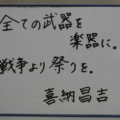 全ての武器を
楽器に。
戦争より祭りを。
喜納昌吉